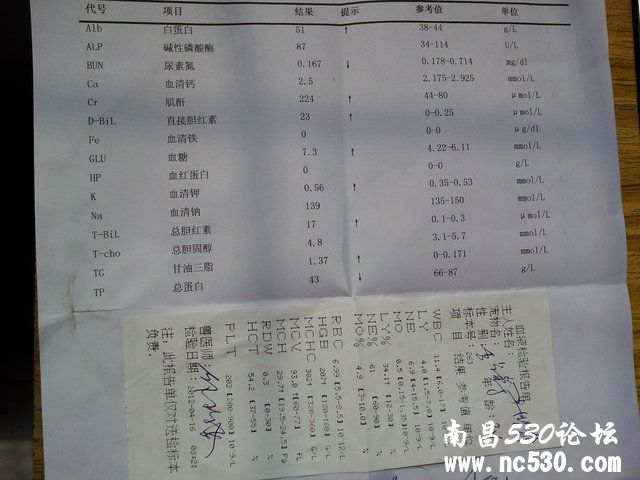 代号 项目 结果 提示 参考值 单位
Alb 白蛋白 51 ↑ 38-44 g/L
ALP 碱性磷酸酶 87 34-114 U/L
BUN 尿素氮 0.167 ↓ 0.178-0.714 mg/dl
Ca 血清钙 2.5 2.175-2.925 mmol/L
Cr 肌酐 224 ↑ 44-80 μmol/L
D-BiL 直接胆红素 23 ↑ 0-0.25 μmol/L
Fe 血清铁 0 0-0 μg/dl
GLU 血糖 7.3 ↑ 4.22-6.11 mmol/L
HP 血红蛋白 0 0-0 g/L
K 血清钾 0.56 ↑ 0.35-0.53 mmol/L
Na 血清钠 139 135-150 mmol/L
T-BiL 总胆红素 17 ↑ 0.1-0.3 μmol/L
T-cho 总胆固醇 4.8 3.1-5.7 mmol/L
TG 甘油三脂 1.37 ↑ 0-0.171 mmol/L
TP 总蛋白 43 ↓ 66-87 g/L
血液检验报告单
主人姓名:
宠物名:
性别 年龄:
标本号: 263
项目 结果 参考值 单位
WBC 11.4
LY 4.0
NE 6.9
MO 0.5
LY% 34.1↑ [12-30] %
NE% 61 [60-90] %
MO% 4.9 [3-10.0] %
RBC 6.99 [5.5-8.5] 10^12/L
HGB 207↑ [120-180] G/L
MCHC 382↑ [320-360] G/L
MCV
MCH 29.7↑ [19.5-24.5] Pg
RDW 0.3 [0-30] %
HCT 54.2 [37-55] %
PLT 202 [200-900] 10^9/L
兽医师:
检验日期: 2012-04-16 08:21
注: 此报告单仅对送检标本
负责.
南昌530论坛
www.nc530.com